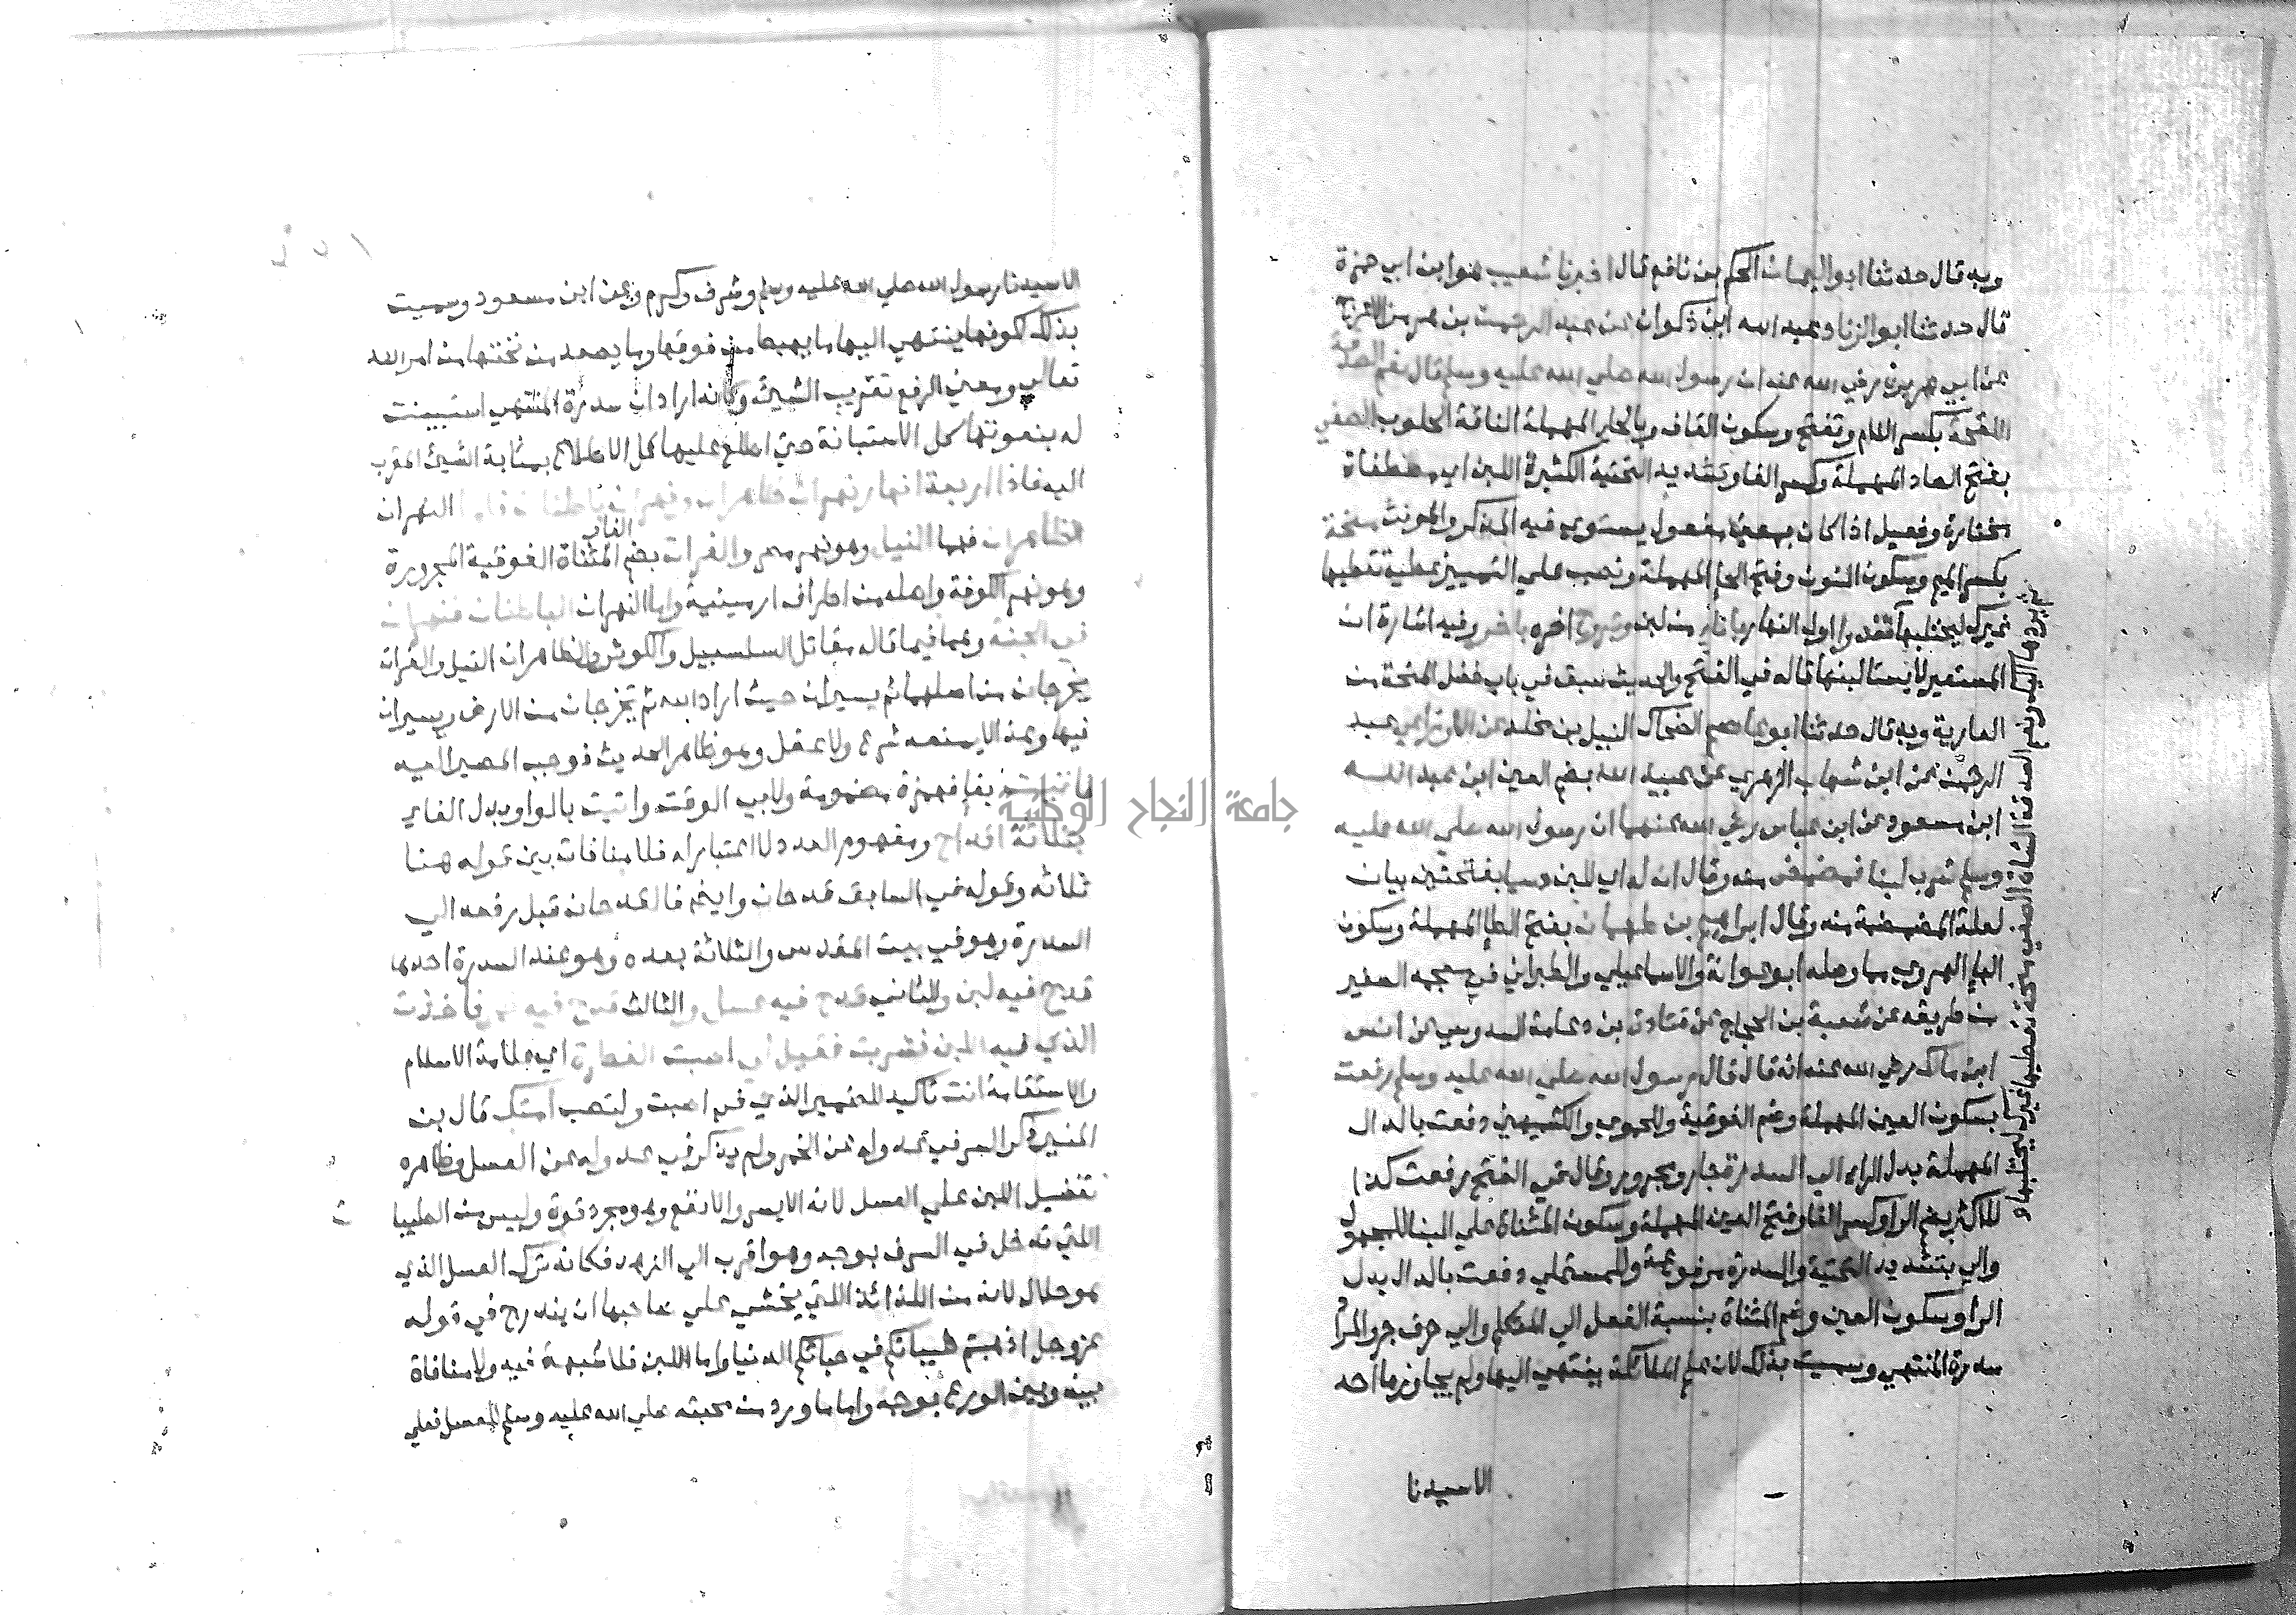 وبه قال حدثنا ابو اليمان الحكم بن نافع قال اخبرنا شعيب هو ابن ابي حمزة
قال حدثنا ابو الزناد عبد الله ابن ذكوان عن عبد الرحمن بن هرمز الاعرج
عن ابي هريرة رضي الله عنه ان رسول الله صلي الله عليه وسلم قال نعم الصدقة
اللقحة بكسر اللام وتفتح وسكون القاف وبالحاء المهملة الناقة الحلوب الصفي
بفتح الصاد المهملة وكسر الفا وتشديد التحتية الكثيرة اللبن اي مصطفاة
مختارة وفعيل اذا كان بمعني مفعول يستوي فيه المذكر والمونث منحة
بكسر الميم وسكون النون وفتح الحا المهملة ونصب علي التمييز عطية تعطيها
غيرك ليحتلبها تغدوا اول النهار باناء من لبن وتروح اخره باخر وفيه اشارة ان
المستعير لا يستا لبنها قاله في الفتح والحديث سبق في باب فضل المنحة من
العارية وبه قال حدثنا ابو عاصم الضحاك النبيل بن مخلد عن الاوزاعي عبد
الرحمن عن ابن شهاب الزهري عن عبيد الله بضم العين ابن عبد الله
ابن مسعود عن ابن عباس رضي الله عنهما ان رسول الله صلي الله عليه
وسلم شرب لبنا فمضمض منه وقال ان له اي للبن دسما بفتحتين بيان
لعلة المضمضة منه وقال ابراهيم بن طهمان بفتح الطا المهملة وسكون
الها الهروي مما وصله ابو عوانة والاسماعيلي والطبراني في معجمه الصغير
من طريقه عن شعبة بن الحجاج عن قتادة بن دعامة السدوسي عن انس
ابن مالك رضي الله عنه انه قال قال رسول الله صلي الله عليه وسلم رفعت
بسكون العين المهملة وضم الفوقية وللحموي والكشميهني دفعت بالدال
المهملة بدل الراء الي السدرة جار ومجرور وقال في الفتح رفعت كذا
للاكثر بضم الرا وكسر الفا وفتح العين المهملة وسكون المثناة علي البنا للمجهول
والي بتشديد التحتية والسدرة مرفوعة وللمستملي دفعت بالدال بدل
الرا وسكون العين وضم المثناة بنسبة الفعل الي المتكلم والي حرف جر والمراد
سدرة المنتهي وسميت بذلك لان علم الملائكة ينتهي اليها ولم يجاوزها احد
الا سيدنا
يرد ها اليك ونعم الصدقة الشاة الصفي منحة تعطيها غيرك ليحتلبها و
الا سيدنا رسول الله صلي الله عليه وسلم وشرف وكرم وعن ابن مسعود وسميت
بذلك لكونها ينتهي اليها ما يهبط من فوقها وما يصعد من تحتها من امر الله
تعالي ومعني الرفع تقريب الشيئ وكانه اراد ان سدرة المنتهي استبينت
له بنعوتها كل الاستبانة حتي اطلع عليها كل الاطلاع بمثابة الشيئ المقرب
اليه فاذا اربعة انهار نهران ظاهران ونهران باطنان فاما النهران
الظاهران فهما النيل وهو نهر مصر والفرات بضم الفاء المثناة الفوقية المجرورة
وهو نهر الكوفة واصله من اطراف ارمينية واما النهران الباطنان فنهران
في الجنة وهما فيما قاله مقاتل السلسبيل والكوثر والظاهران النيل والفرات
يخرجان من اصلهما ثم يسيران حيث اراد الله ثم يخرجان من الارض ويسيران
فيها وهذا لا يمنعه شرع ولا عقل وهو ظاهر الحديث فوجب المصير اليه
فاتيت بفاء فهمزة مضمومة ولابي الوقت واتيت بالواو بدل الفاء
بثلاثة اقداح ومفهوم العدد لا اعتبار له فلا منافات بين قوله هنا
ثلاثه وقوله في السابق قدحان وايضا فالقدحان قبل رفعه الي
السدرة وهو في بيت المقدس والثلاثة بعده وهو عند السدرة احدها
قدح فيه لبن والثاني قدح فيه عسل والثالث قدح فيه خمر فاخذت
الذي فيه اللبن فشربت فقيل لي اصبت الفطرة اي علامة الاسلام
والاستقامة انت تاكيد للضمير الذي في اصبت ولتصب امتك قال بن
المنير ذكر السر في عدوله عن الخمر ولم يذكر في عدوله عن العسل وظاهره
تفضيل اللبن علي العسل لانه الايسر والانفع وهو مجرد قوة وليس من الطيبا
ت
اللتي تدخل في السرف بوجه وهو اقرب الي الزهد فكانه ترك العسل الذي
هو حلال لانه من اللذائذ اللتي يخشي علي صاحبها ان يندرج في قوله
عز وجل اذهبتم طيباتكم في حياتكم الدنيا واما اللبن فلا شبهة فيه ولا منافاة
بينه وبين الورع بوجه واما ما ورد من محبته صلي الله عليه وسلم للعسل فعلي
جامعة النجاح الوطنية